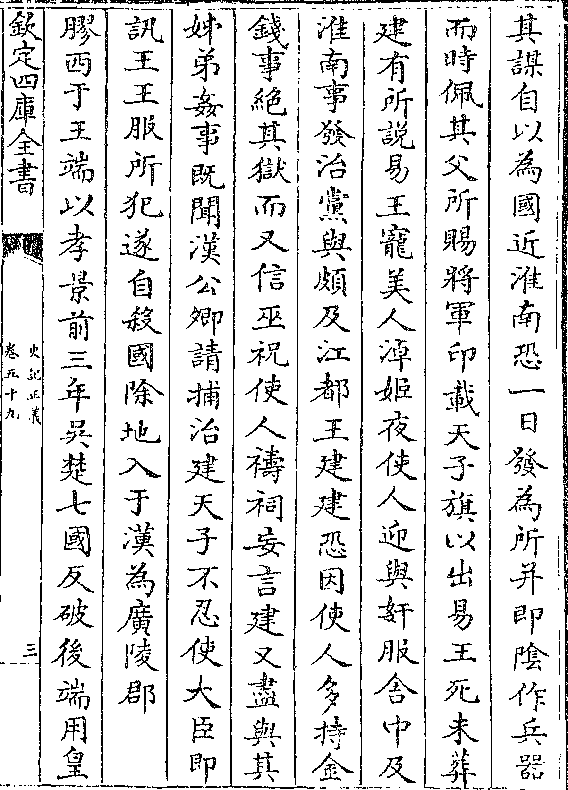 其謀自以為國近淮南恐一日發為所并即隂作兵器
而時佩其父所賜將軍印載天子旗以出易王死未葬
建有所説易王寵美人淖姬夜使人迎與奸服舍中及
淮南事發治黨與頗及江都王建建恐因使人多持金
錢事絶其獄而又信巫祝使人禱祠妄言建又盡與其
姊弟姦事既聞漢公卿請捕治建天子不忍使大臣即
訊王王服所犯遂自殺國除地入于漢為廣陵郡
膠西于王端以孝景前三年吳楚七國反破後端用皇
欽定四庫全書
史記正義
卷五十九
三